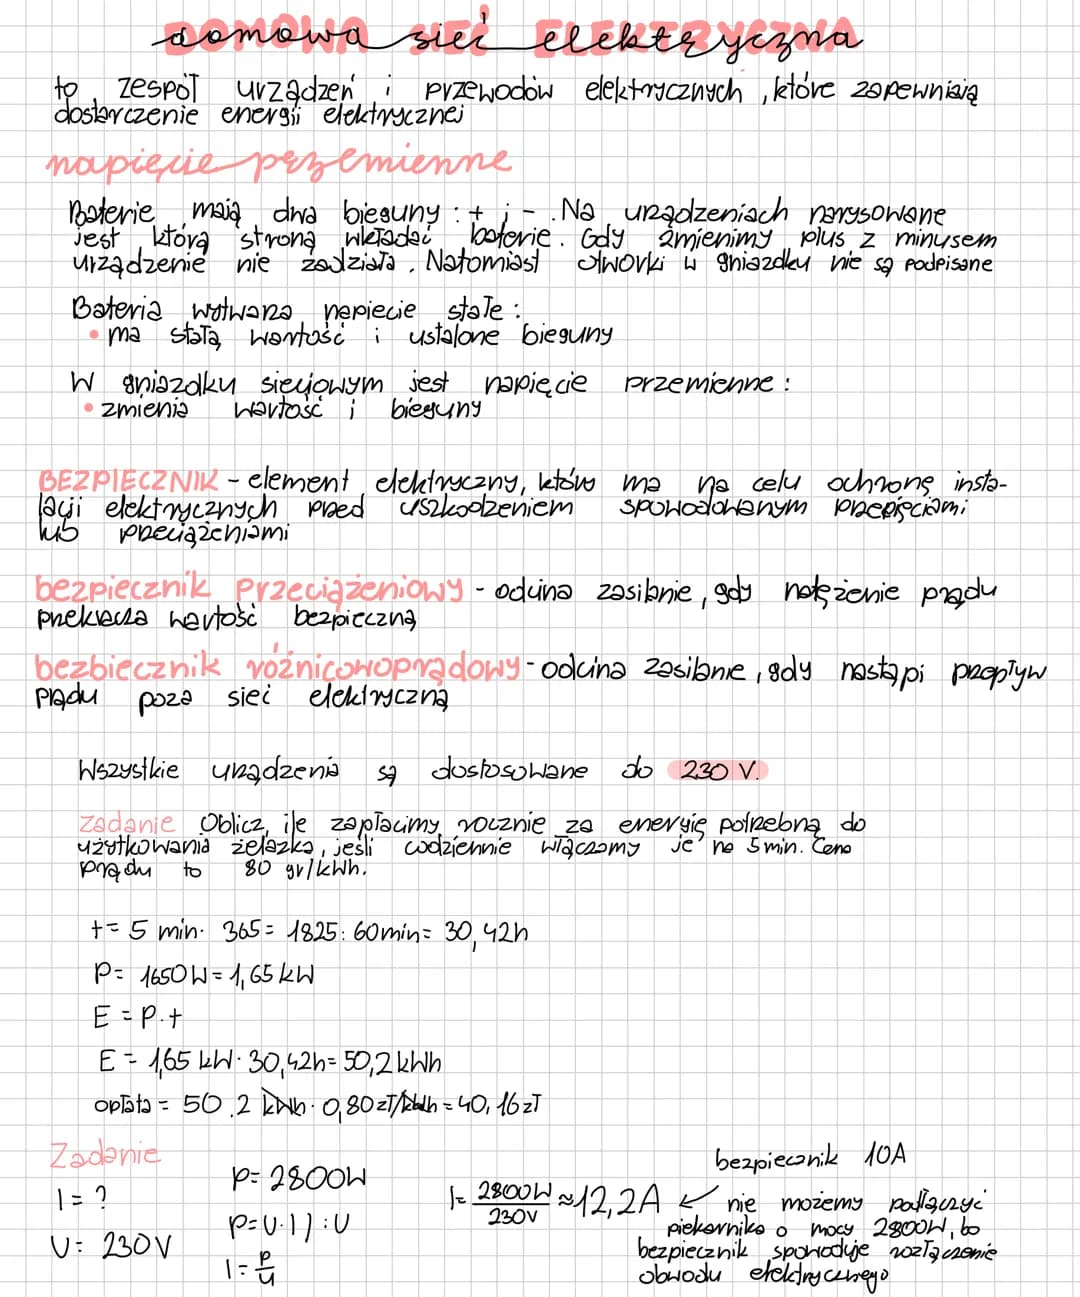 domowa sieć elektryczna
to zespół urządzeń i przewodów elektrycznych, które zapewniają
dostarczenie energii elektrycznej
napięcie przemienne
Baterie mają dwa bieguny : + i - . Na urządzeniach narysowane
jest którą stroną wkładać baterie. Gdy zmienimy plus z minusem
urządzenie nie zadziała. Natomiast otworki w gniazdku nie są podpisane
Bateria wytwarza napięcie stałe :
• ma stałą wartość i ustalone bieguny
W gniazdku sieciowym jest napięcie przemienne :
• zmienia wartość i bieguny
BEZPIECZNIK - element elektryczny, który ma na celu ochronę insta-
lacji elektrycznych przed uszkodzeniem spowodowanym przepięciami
lub przeciążeniami
bezpiecznik przeciążeniowy - odcina zasilanie, gdy natężenie prądu
przekracza wartość bezpieczną
bezbiecznik różnicowoprądowy - odcina zasilanie, gdy nastąpi przepływ
prądu poza sieć elektryczną
Wszystkie urządzenia są dostosowane do 230 V.
Zadanie Oblicz, ile zapłacimy rocznie za energię potrzebną do
użytkowania żelazka, jeśli codziennie włączamy je na 5 min. Cena
prądu to 80 gr/kWh.
t= 5 min · 365= 1825 : 60min= 30,42h
P= 1650W=1,65 kW
E = P·t
E = 1,65 kW · 30,42h= 50,2 kWh
opłata = 50,2 kWh · 0,80 zł/kWh = 40,16 zł
Zadanie
I = ?
U= 230V
P= 2800W
P=U·I |:U
I = P/U
I= 2800W/230V ≈12,2A ↙
bezpiecznik 10A
nie możemy podłączyć
piekarnika o mocy 2800W, bo
bezpiecznik spowoduje rozłączenie
obwodu elektrycznego